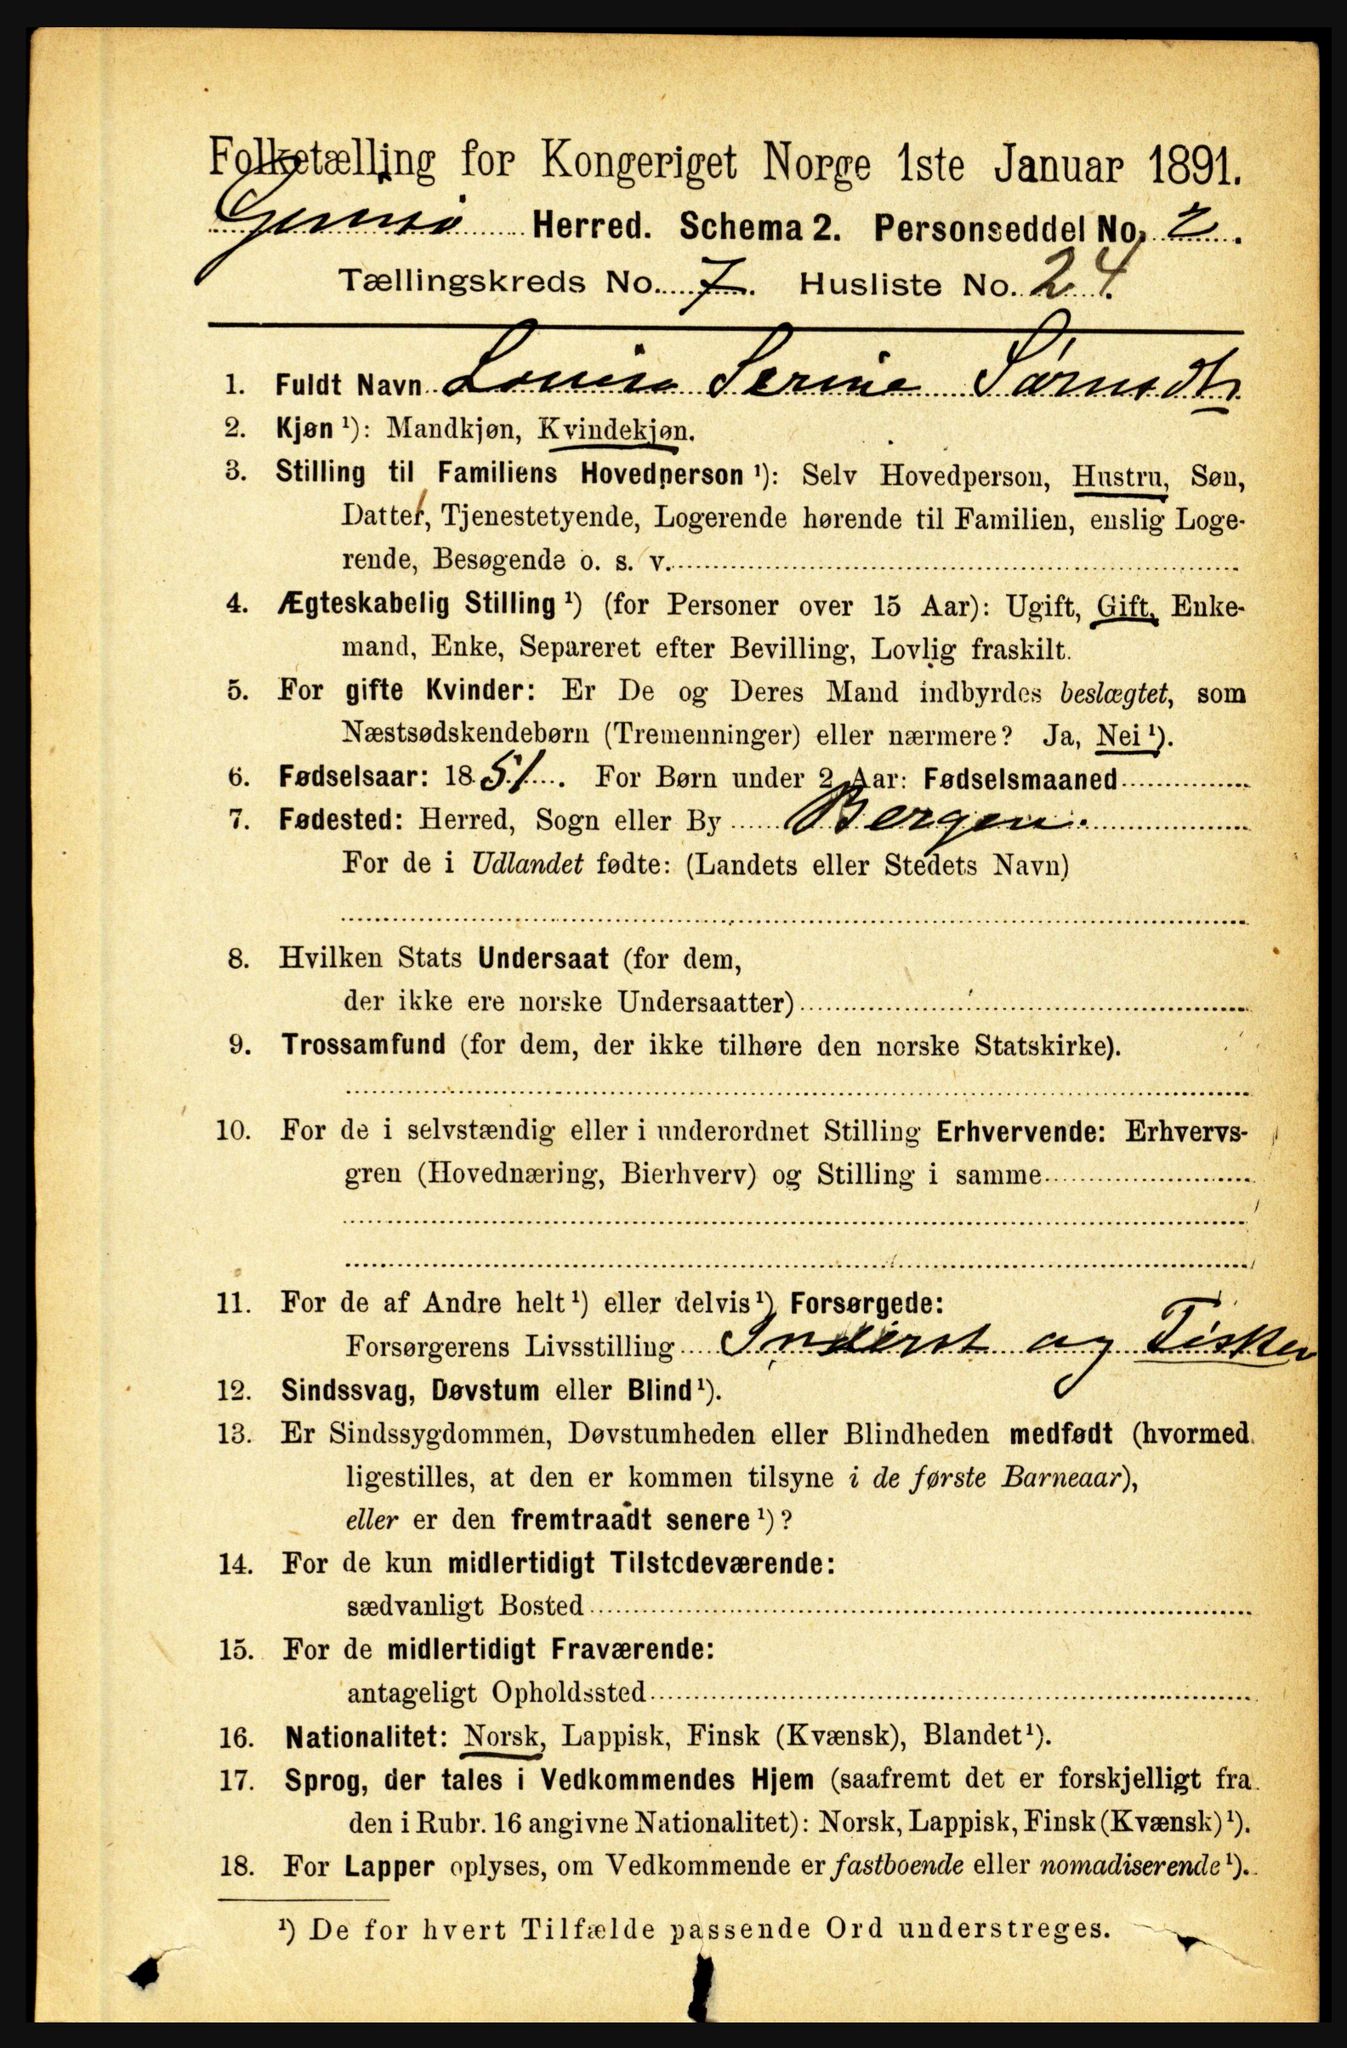 Folketælling for Kongeriget Norge 1ste Januar 1891.
Gimsø Herred. Schema 2. Personseddel No. 2.
Tællingskreds No. 7. Husliste No. 24.
1. Fuldt Navn Lovise Serine Sørensdtr
2. Kjøn ¹): Mandkjøn, Kvindekjøn.
3. Stilling til Familiens Hovedperson ¹): Selv Hovedperson, Hustru, Søn,
Datter, Tjenestetyende, Logerende hørende til Familien, enslig Loge-
rende, Besøgende o. s. v.
4. Ægteskabelig Stilling ¹) (for Personer over 15 Aar): Ugift, Gift, Enke-
mand, Enke, Separeret efter Bevilling, Lovlig fraskilt.
5. For gifte Kvinder: Er De og Deres Mand indbyrdes beslægtet, som
Næstsødskendebørn (Tremenninger) eller nærmere? Ja, Nei ¹).
6. Fødselsaar: 1851. For Børn under 2 Aar: Fødselsmaaned
7. Fødested: Herred, Sogn eller By Bergen.
For de i Udlandet fødte: (Landets eller Stedets Navn)
8. Hvilken Stats Undersaat (for dem,
der ikke ere norske Undersaatter)
9. Trossamfund (for dem, der ikke tilhøre den norske Statskirke).
10. For de i selvstændig eller i underordnet Stilling Erhvervende: Erhvervs-
gren (Hovednæring, Bierhverv) og Stilling i samme
11. For de af Andre helt ¹) eller delvis ¹) Forsørgede:
Forsørgerens Livsstilling Inderst og Fisker
12. Sindssvag, Døvstum eller Blind ¹).
13. Er Sindssygdommen, Døvstumheden eller Blindheden medfødt (hvormed
ligestilles, at den er kommen tilsyne i de første Barneaar),
eller er den fremtraadt senere ¹)?
14. For de kun midlertidigt Tilstedeværende:
sædvanligt Bosted
15. For de midlertidigt Fraværende:
antageligt Opholdssted
16. Nationalitet: Norsk, Lappisk, Finsk (Kvænsk), Blandet ¹).
17. Sprog, der tales i Vedkommendes Hjem (saafremt det er forskjelligt fra
den i Rubr. 16 angivne Nationalitet): Norsk, Lappisk, Finsk (Kvænsk) ¹).
18. For Lapper oplyses, om Vedkommende er fastboende eller nomadiserende ¹).
¹) De for hvert Tilfælde passende Ord understreges.